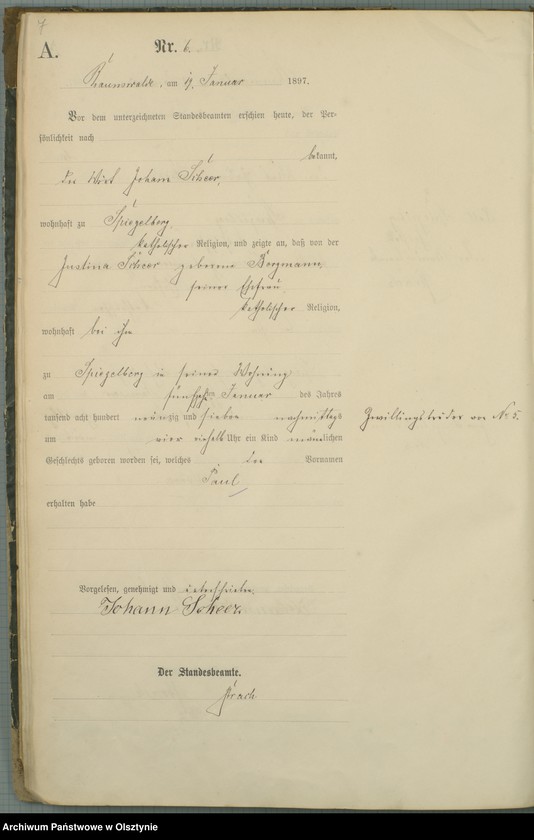 7
A.
Nr. 6.
am 9. Januar 1897.
Vor dem unterzeichneten Standesbeamten erschien heute, der Per-
sönlichkeit nach
bekannt,
der Wirt Johann Scheer,
wohnhaft zu Spiegelberg,
katholischer Religion, und zeigte an, daß von der
Justina Scheer geborene Bergmann,
seiner Ehefrau
katholischer Religion,
wohnhaft bei ihm
zu Spiegelberg in seiner Wohnung
am Januar des Jahres
tausend acht hundert neunzig und sieben nachmittags
um vier einhalb Uhr ein Kind männlichen
Geschlechts geboren worden sei, welches den Vornamen
Paul
erhalten habe
Zwillingsbruder von No 5.
Vorgelesen, genehmigt und unterschrieben.
Johann Scheer.
Der Standesbeamte.
Archiwum Państwowe w Olsztynie